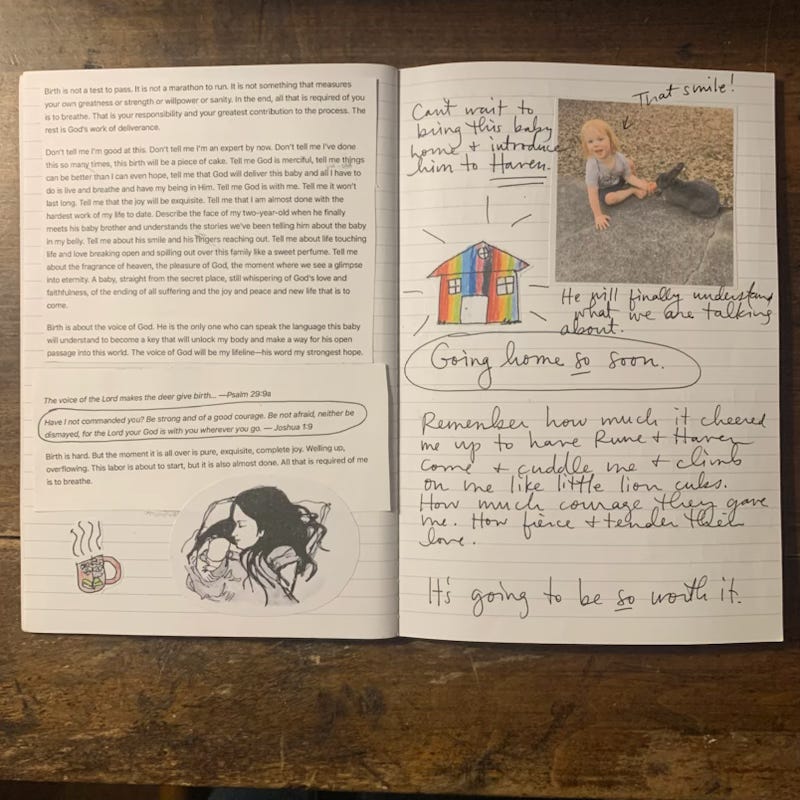 Birth is not a test to pass. It is not a marathon to run. It is not something that measures
your own greatness or strength or willpower or sanity. In the end, all that is required of you
is to breathe. That is your responsibility and your greatest contribution to the process. The
rest is God's work of deliverance.
Don't tell me I'm good at this. Don't tell me I'm an expert by now. Don't tell me I've done
this so many times, this birth will be a piece of cake. Tell me God is merciful, tell me things
can be better than I can even hope, tell me that God will deliver this baby and all I have to
do is live and breathe and have my being in Him. Tell me God is with me. Tell me it won't
last long. Tell me that the joy will be exquisite. Tell me that I am almost done with the
hardest work of my life to date. Describe the face of my two-year-old when he finally
meets his baby brother and understands the stories we've been telling him about the baby
in my belly. Tell me about his smile and his fingers reaching out. Tell me about life touching
life and love breaking open and spilling out over this family like a sweet perfume. Tell me
about the fragrance of heaven, the pleasure of God, the moment where we see a glimpse
into eternity. A baby, straight from the secret place, still whispering of God's love and
faithfulness, of the ending of all suffering and the joy and peace and new life that is to
come.
Birth is about the voice of God. He is the only one who can speak the language this baby
will understand to become a key that will unlock my body and make a way for his open
passage into this world. The voice of God will be my lifeline—his word my strongest hope.
The voice of the Lord makes the deer give birth... —Psalm 29:9a
Have I not commanded you? Be strong and of a good courage. Be not afraid, neither be
dismayed, for the Lord your God is with you wherever you go. — Joshua 1:9
Birth is hard. But the moment it is all over is pure, exquisite, complete joy. Welling up,
overflowing. This labor is about to start, but it is also almost done. All that is required of me
is to breathe.
Can't wait to
bring this baby
home + introduce
him to Haven.
That smile!
He will finally understand
what we are talking
about.
Going home so soon.
Remember how much it cheered
me up to have Rune + Haven
come + cuddle me + climb
on me like little lion cubs.
How much courage they gave
me. How fierce + tender their
love.
It's going to be so worth it.